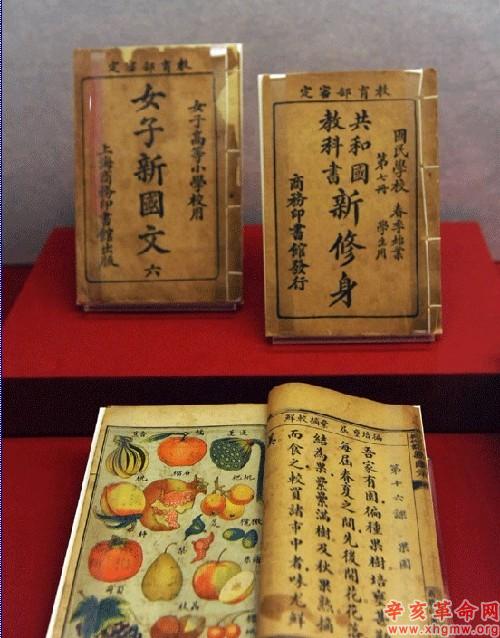 教育部審定
女子高等小學校用
女子新國文 六
上海商務印書館出版
教育部審定
國民學校 春季始業
第七冊 學生用
共和國
教科書
新修身
商務印書館發行
第十六課 果園
吾家有園徧種果樹培壅
每屆春夏之間先後開花花落
結為果纍纍滿樹及秋果熟摘
而食之較買諸市中者味尤鮮
橘
桃
枇杷
石榴
柿
荔枝
辛亥革命网
www.xhgmw.org